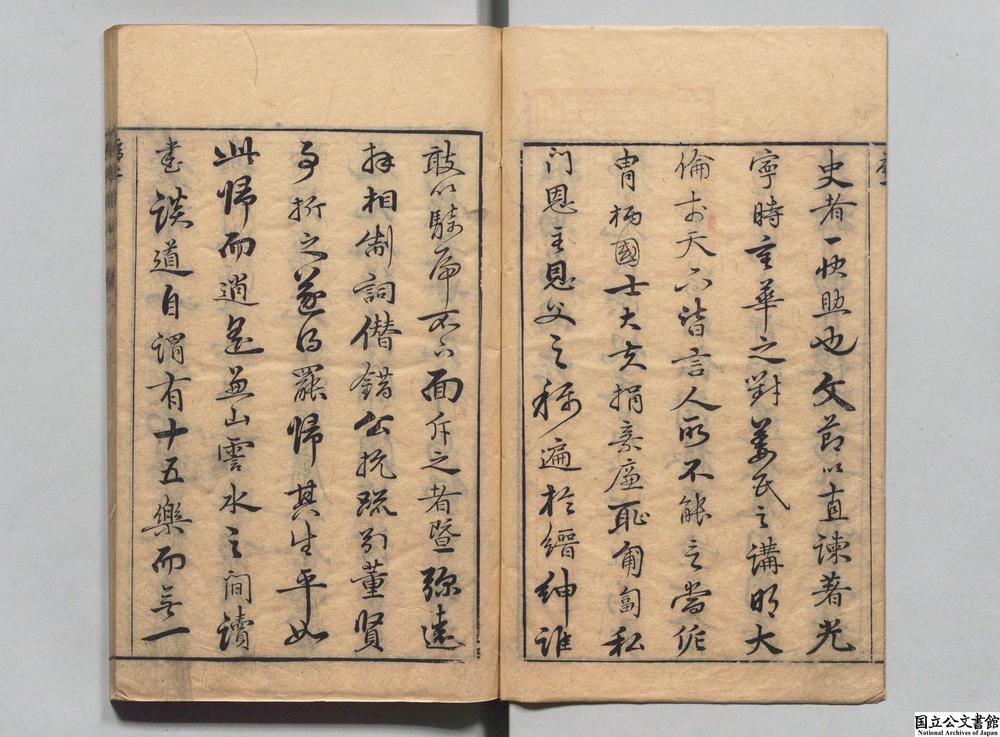 史者一快助也文節以直諫著光
寧時重華之對姜氏之講明大
倫於天下皆言人所不能言當侂
冑柄國士大夫捐棄廉恥匍匐私
門恩主恩父之稱遍於縉紳誰
敢以騎虎不下面斥之者暨彌遠
拜相制詞僭錯公抗疏引董賢
事折之遂得罷歸其生平如
此歸而逍遙兼山雲水之間讀
書談道自謂有十五樂而無一
国立公文書館
National Archives of Japan